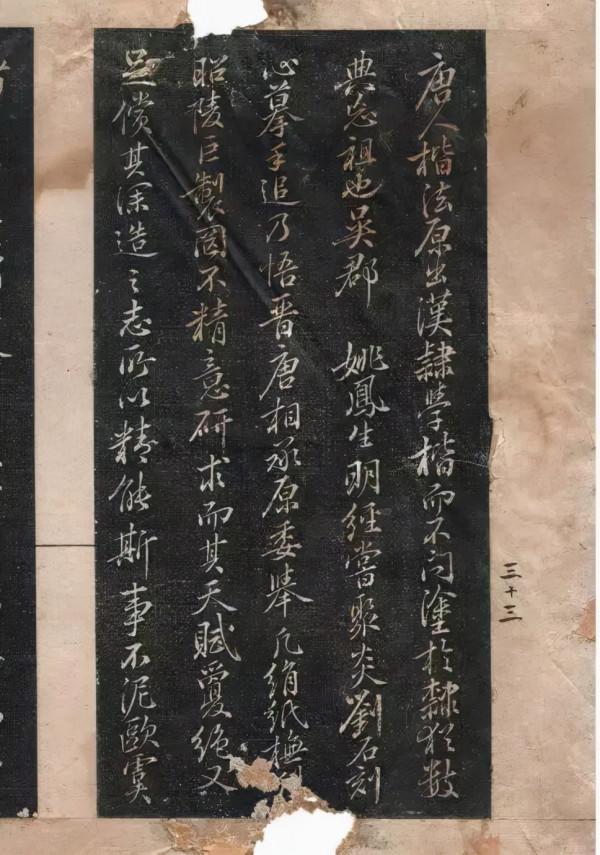 唐人楷法原出漢隸學楷而不問塗於隸猶數
典忘祖也吳郡 姚鳳生明經嘗聚炎劉石刻
心摹手追乃悟晉唐相承原委舉凡絹紙橅
昭陵巨製罔不精意研求而其天賦敻絕又
足償其深造之志所以精能斯事不泥歐虞
三十三